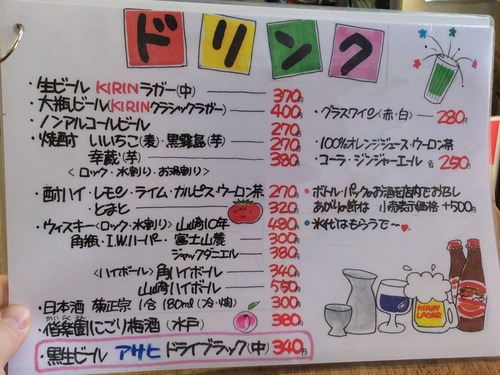 ドリンク
・生ビール KIRINラガー(中) 370円
・大瓶ビール(KIRINクラシックラガー) 400円
・ノンアルコールビール 270円
・焼酎 いいちこ(麦)・黒霧島(芋) 270円
幸蔵(芋) 380円
<ロック・水割り・お湯割り>
・酎ハイ・レモン・ライム・カルピス・ウーロン茶 270円
とまと 320円
・ウィスキー<ロック・水割り> 山崎10年 480円
角瓶・I.W.ハーパー・富士山麓 300円
ジャックダニエル 380円
<ハイボール> 角ハイボール 340円
山崎ハイボール 550円
・日本酒 菊正宗 1合 180ml (冷・燗) 300円
かいらくえん
・偕楽園にごり梅酒 (水戸) 380円
・黒生ビール アサヒ ドライブラック(中) 340円
・グラスワイン(赤・白) 280円
・100%オレンジジュース・ウーロン茶
・コーラ・ジンジャーエール 各250円
・ボトル・パックのお酒を店内でお召し
あがりの節は 小売表示価格+500円
・氷代はもらうで〜
KIRIN
LAGER